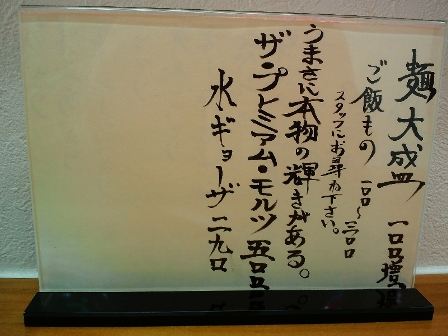 麺大盛 一〇〇増
ご飯もの 一〇〇〜三〇〇
スタッフにお尋ね下さい。
うまさに本物の輝きがある。
ザ・プレミアム・モルツ 五〇〇
水・ギョーザ 二九〇